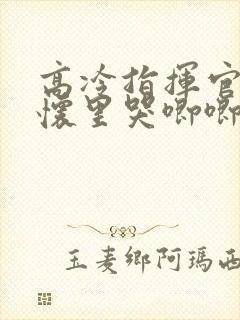 高冷指揮官
懷里哭唧唧
玉麦鄉阿瑪西